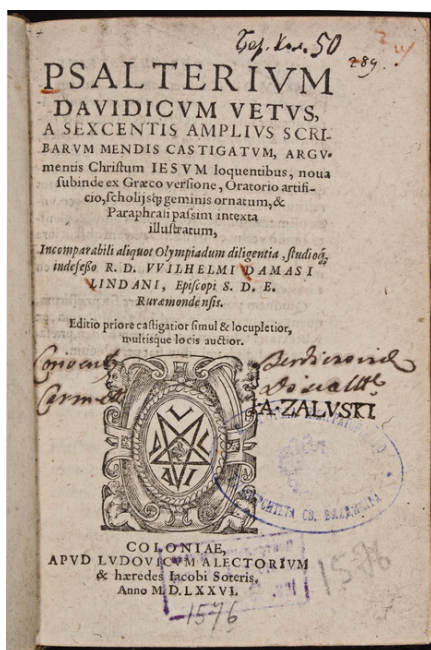 50
289
PSALTERIVM
DAVIDICVM VETVS,
A SEXCENTIS AMPLIVS SCRI-
BARVM MENDIS CASTIGATVM, ARGV-
mentis Christum IESVM loquentibus, noua
subinde ex Græco versione, Oratorio artifi-
cio, scholijsq; geminis ornatum, &
Paraphrasi passim intexta
illustratum,
Incomparabili aliquot Olympiadum diligentia, studioq́;
indefeßo R. D. VVILHELMI DAMASI
LINDANI, Episcopi S. D. E.
Ruræmondensis.
Editio priore castigatior simul & locupletior,
multisque locis auctior.
Convent
Carmel
I.A. ZALUSKI
СВ. ВЛАДИМІРА
COLONIAE,
APVD LVDOVICVM ALECTORIVM
& hæredes Iacobi Soteris,
Anno M. D. LXXVI.
1576
1576